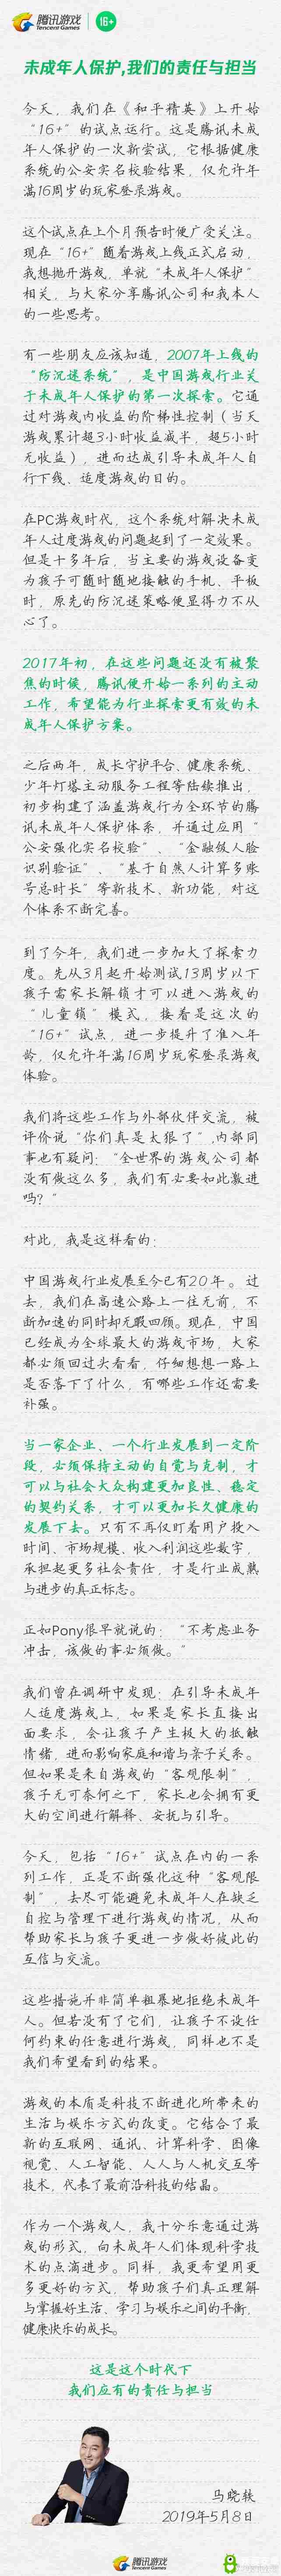 腾讯游戏
Tencent Games
16+
未成年人保护,我们的责任与担当
今天，我们在《和平精英》上开始
“16+”的试点运行。这是腾讯未成
年人保护的一次新尝试，它根据健康
系统的公安实名校验结果，仅允许年
满16周岁的玩家登录游戏。
这个试点在上个月预告时便广受关注。
现在“16+”随着游戏上线正式启动，
我想抛开游戏，单就“未成年人保护”
相关，与大家分享腾讯公司和我本人
的一些思考。
有一些朋友应该知道，2007年上线的
“防沉迷系统”，是中国游戏行业关
于未成年人保护的第一次探索。它通
过对游戏内收益的阶梯性控制（当天
游戏累计超3小时收益减半，超5小时
无收益），进而达成引导未成年人自
行下线、适度游戏的目的。
在PC游戏时代，这个系统对解决未成
年人过度游戏的问题起到了一定效果。
但是十多年后，当主要的游戏设备变
为孩子可随时随地接触的手机、平板
时，原先的防沉迷策略便显得力不从
心了。
2017年初，在这些问题还没有被聚
焦的时候，腾讯便开始一系列的主动
工作，希望能为行业探索更有效的未
成年人保护方案。
之后两年，成长守护平台、健康系统、
少年灯塔主动服务工程等陆续推出，
初步构建了涵盖游戏行为全环节的腾
讯未成年人保护体系，并通过应用“
公安强化实名校验”、“金融级人脸
识别验证”、“基于自然人计算多账
号总时长”等新技术、新功能，对这
个体系不断完善。
到了今年，我们进一步加大了探索力
度。先从3月起开始测试13周岁以下
孩子需家长解锁才可以进入游戏的
“儿童锁”模式，接着是这次的
“16+”试点，进一步提升了准入年
龄，仅允许年满16周岁玩家登录游戏
体验。
我们将这些工作与外部伙伴交流，被
评价说“你们真是太狠了”,内部同
事也有疑问：“全世界的游戏公司都
没有做这么多，我们有必要如此激进
吗？“
对此，我是这样看的：
中国游戏行业发展至今已有20年。过
去，我们在高速公路上一往无前，不
断加速的同时却无暇回顾。现在，中国
已经成为全球最大的游戏市场，大家
都必须回过头看看，仔细想想一路上
是否落下了什么，有哪些工作还需要
补强。
当一家企业、一个行业发展到一定阶
段，必须保持主动的自觉与克制，才
可以与社会大众构建更加良性、稳定
的契约关系，才可以更加长久健康的
发展下去。只有不再仅盯着用户投入
时间、市场规模、收入利润这些数字，
承担起更多社会责任，才是行业成熟
与进步的真正标志。
正如Pony很早就说的：“不考虑业务
冲击，该做的事必须做。”
我们曾在调研中发现：在引导未成年
人适度游戏上，如果是家长直接出
面要求，会让孩子产生极大的抵触
情绪，进而影响家庭和谐与亲子关系。
但如果是来自游戏的“客观限制”，
孩子无可奈何之下，家长也会拥有更
大的空间进行解释、安抚与引导。
今天，包括“16+”试点在内的一系
列工作，正是不断强化这种“客观限
制”，去尽可能避免未成年人在缺乏
自控与管理下进行游戏的情况，从而
帮助家长与孩子更进一步做好彼此的
互信与交流。
这些措施并非简单粗暴地拒绝未成年
人。但若没有了它们，让孩子不设任
何约束的任意进行游戏，同样也不是
我们希望看到的结果。
游戏的本质是科技不断进化所带来的
生活与娱乐方式的改变。它结合了最
新的互联网、通讯、计算科学、图像
视觉、人工智能、人人与人机交互等
技术，代表了最前沿科技的结晶。
作为一个游戏人，我十分乐意通过游
戏的形式，向未成年人们体现科学技
术的点滴进步。同样，我更希望用更
多更好的方式，帮助孩子们真正理解
与掌握好生活、学习与娱乐之间的平衡，
健康快乐的成长。
这是这个时代下
我们应有的责任与担当
马晓轶
2019年5月8日
腾讯游戏
Tencent Games